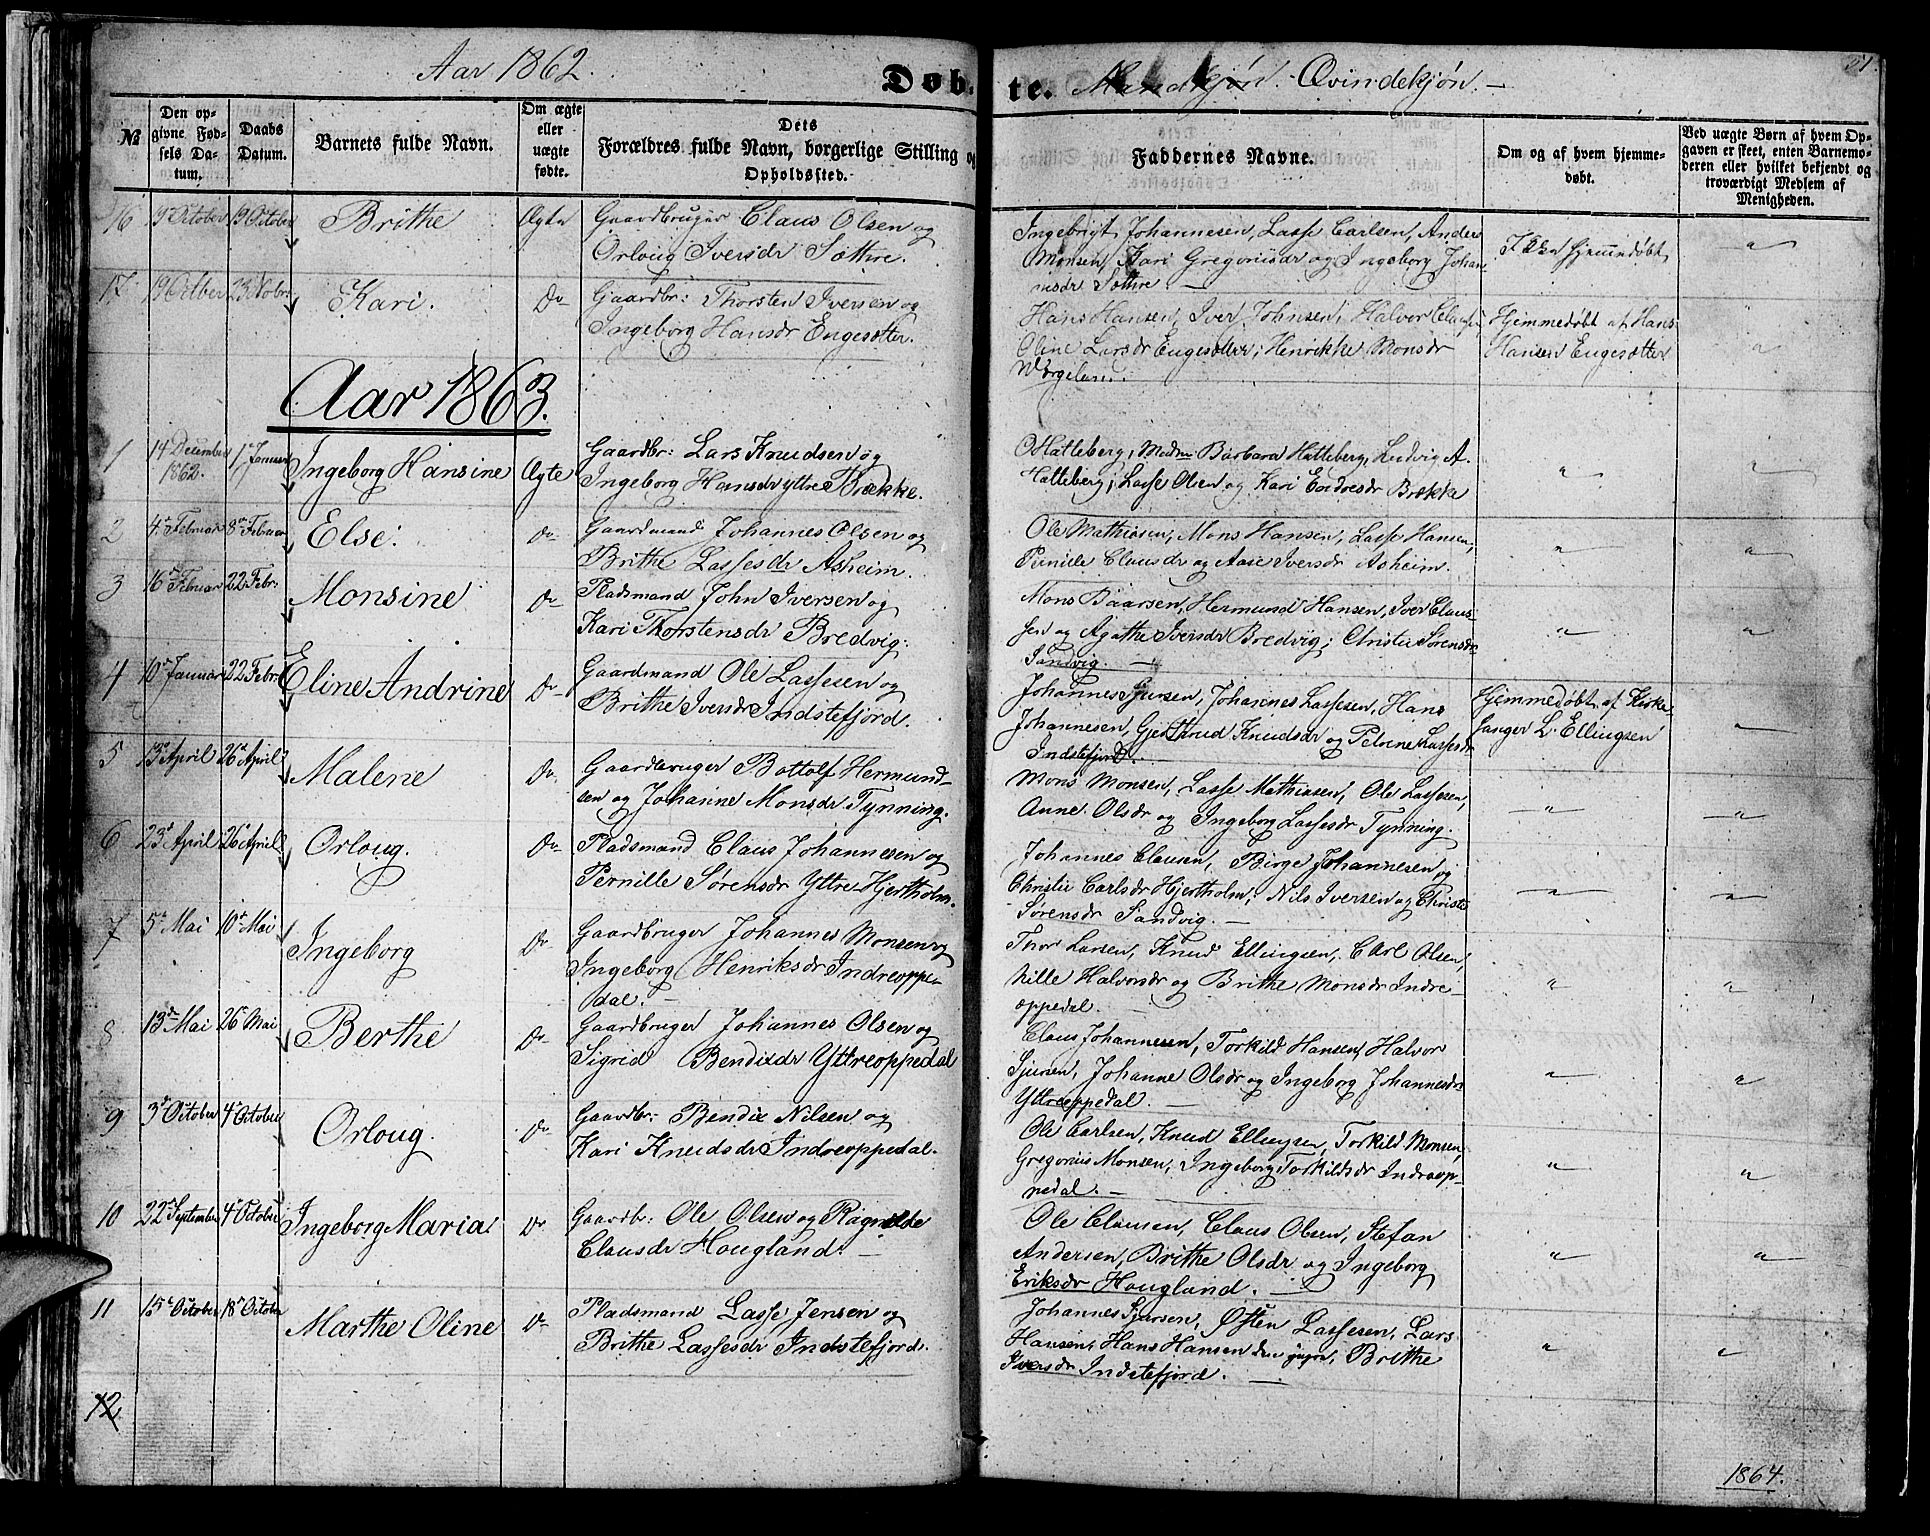 Aar 1862.
Døb-
№
Den op-
givne Fød-
sels Da-
tum.
Daabs
Datum.
Barnets fulde Navn.
Om ægte
eller
uægte
fødte.
Dets
Forældres fulde Navn, borgerlige Stilling og
Opholdssted.
16 9 October 19 October Brithe Ægte Gaardbruger Claus Olsen og
Orloug Iversdr Sættre.
17 19 Octber 23 Nobr: Kari. Do Gaardbr: Thorsten Iversen og
Ingeborg Hansdr Engesætter.
Aar 1863.
1 14 December 1862. 1 Januar Ingeborg Hansine Ægte Gaardbr: Lars Knudsen og
Ingeborg Hansdr ytre Brække.
2 4 Februar 8 Februar Else. Do Gaardmand Johannes Olsen og
Brithe Lassesdr Asheim.
3 16 Februar 22 Febr: Monsine Do Pladsmand John Iversen og
Kari Thorstensdr Bredvig.
4 10 Januar 22 Febr: Eline Andrine Do Gaardmand Ole Lassesen og
Brithe Iversdr Indstefjord.
5 13 April 26 April Malene Do Gaardbruger Bottolf Hermund-
sen og Johanne Monsdr Tynning.
6 23 April 26 April Orloug. Do Pladsmand Claus Johannesen og
Pernille Sørensdr Yttre Hjertholm.
7 5 Mai 10 Mai Ingeborg Do Gaardbruger Johannes Monsen og
Ingeborg Henriksdr Indreoppe-
dal. —
8 13 Mai 26 Mai Berthe Do Gaardbruger Johannes Olsen og
Sigrid Bendixdr Yttreoppedal
9 3 October 4 October Orloug. Do Gaardbr: Bendix Nilsen og
Kari Knudsdr Indreoppedal.
10 22 September 4 October Ingeborg Maria Do Gaardbr: Ole Olsen og Ragnilde
Clausdr Hougland. —
11 15 October 18 October Marthe Oline Do Pladsmand Lasse Jensen og
Brithe Lassesdr Indstefjord.
12
te. Mandkjøn. Qvindekjøn. —
21.
Faddernes Navne.
Om og af hvem hjemme-
døbt.
Ved uægte Børn af hvem Op-
gaven er skeet, enten Barnemo-
deren eller hvilket bekjendt og
troværdigt Medlem af
Menigheden.
Ingebrigt Johannesen, Lasse Carlsen, Anders
Monsen, Kari Gregoriusdr og Ingeborg Johan-
nesdr Sættre. — hjemmedøbt "
Hans Hansen, Iver Johnsen, Halvor Clausen, Hjemmedøbt af Hans
Oline Larsdr Engesætter, Henrikke Monsdr Hansen Engesætter "
O Hatleberg, Madme Barbara Hatleberg, Ludvig A.
Hatleberg, Lasse Olsen og Kari Endresdr Brække " "
Ole Mathiasen, Mons Hansen, Lasse Hansen,
Pernille Clausdr og Aase Iversdr Asheim. " "
Mons Baarsen, Hermund Hansen, Iver Claus-
sen og Agathe Iversdr Bredvig; Christie Sørensdr
Sandvig. — " "
Johannes Sjursen, Johannes Lassesen, Hans Hjemmedøbt af Kirke-
Johannesen, Gjertrud Knudsdr og Petrine Lassesdr sanger L. Ellingsen "
Indstefjord.
Mons Monsen, Lasse Mathiasen, Ole Lassesen,
Anne Olsdr og Ingeborg Lassesdr Tynning. " "
Johannes Clausen, Børge Johannesen og
Christie Carlsdr Hjertholm, Nils Iversen og Christi
Sørensdr Sandvig. — " "
Thor Larsen, Knud Ellingsen, Carl Olsen,
Nille Halvorsdr og Brithe Monsdr Indre-
oppedal. " "
Claus Johannesen, Torkild Hansen, Halvor
Sjursen, Johanne Olsdr og Ingeborg Johannesdr
Yttreoppedal. — " "
Ole Carlsen, Knud Ellingsen, Torkild Monsen,
Gregorius Monsen, Ingeborg Torkildsdr Indreop-
pedal. — " "
Ole Clausen, Claus Olsen, Stefan
Andersen, Brithe Olsdr og Ingeborg
Eriksdr Hougland. — " "
Johannes Sjursen, Østen Lassesen, Lars
Hansen, Hans Hansen den yngre, Brithe
Iversdr Indstefjord. — " "
1864.